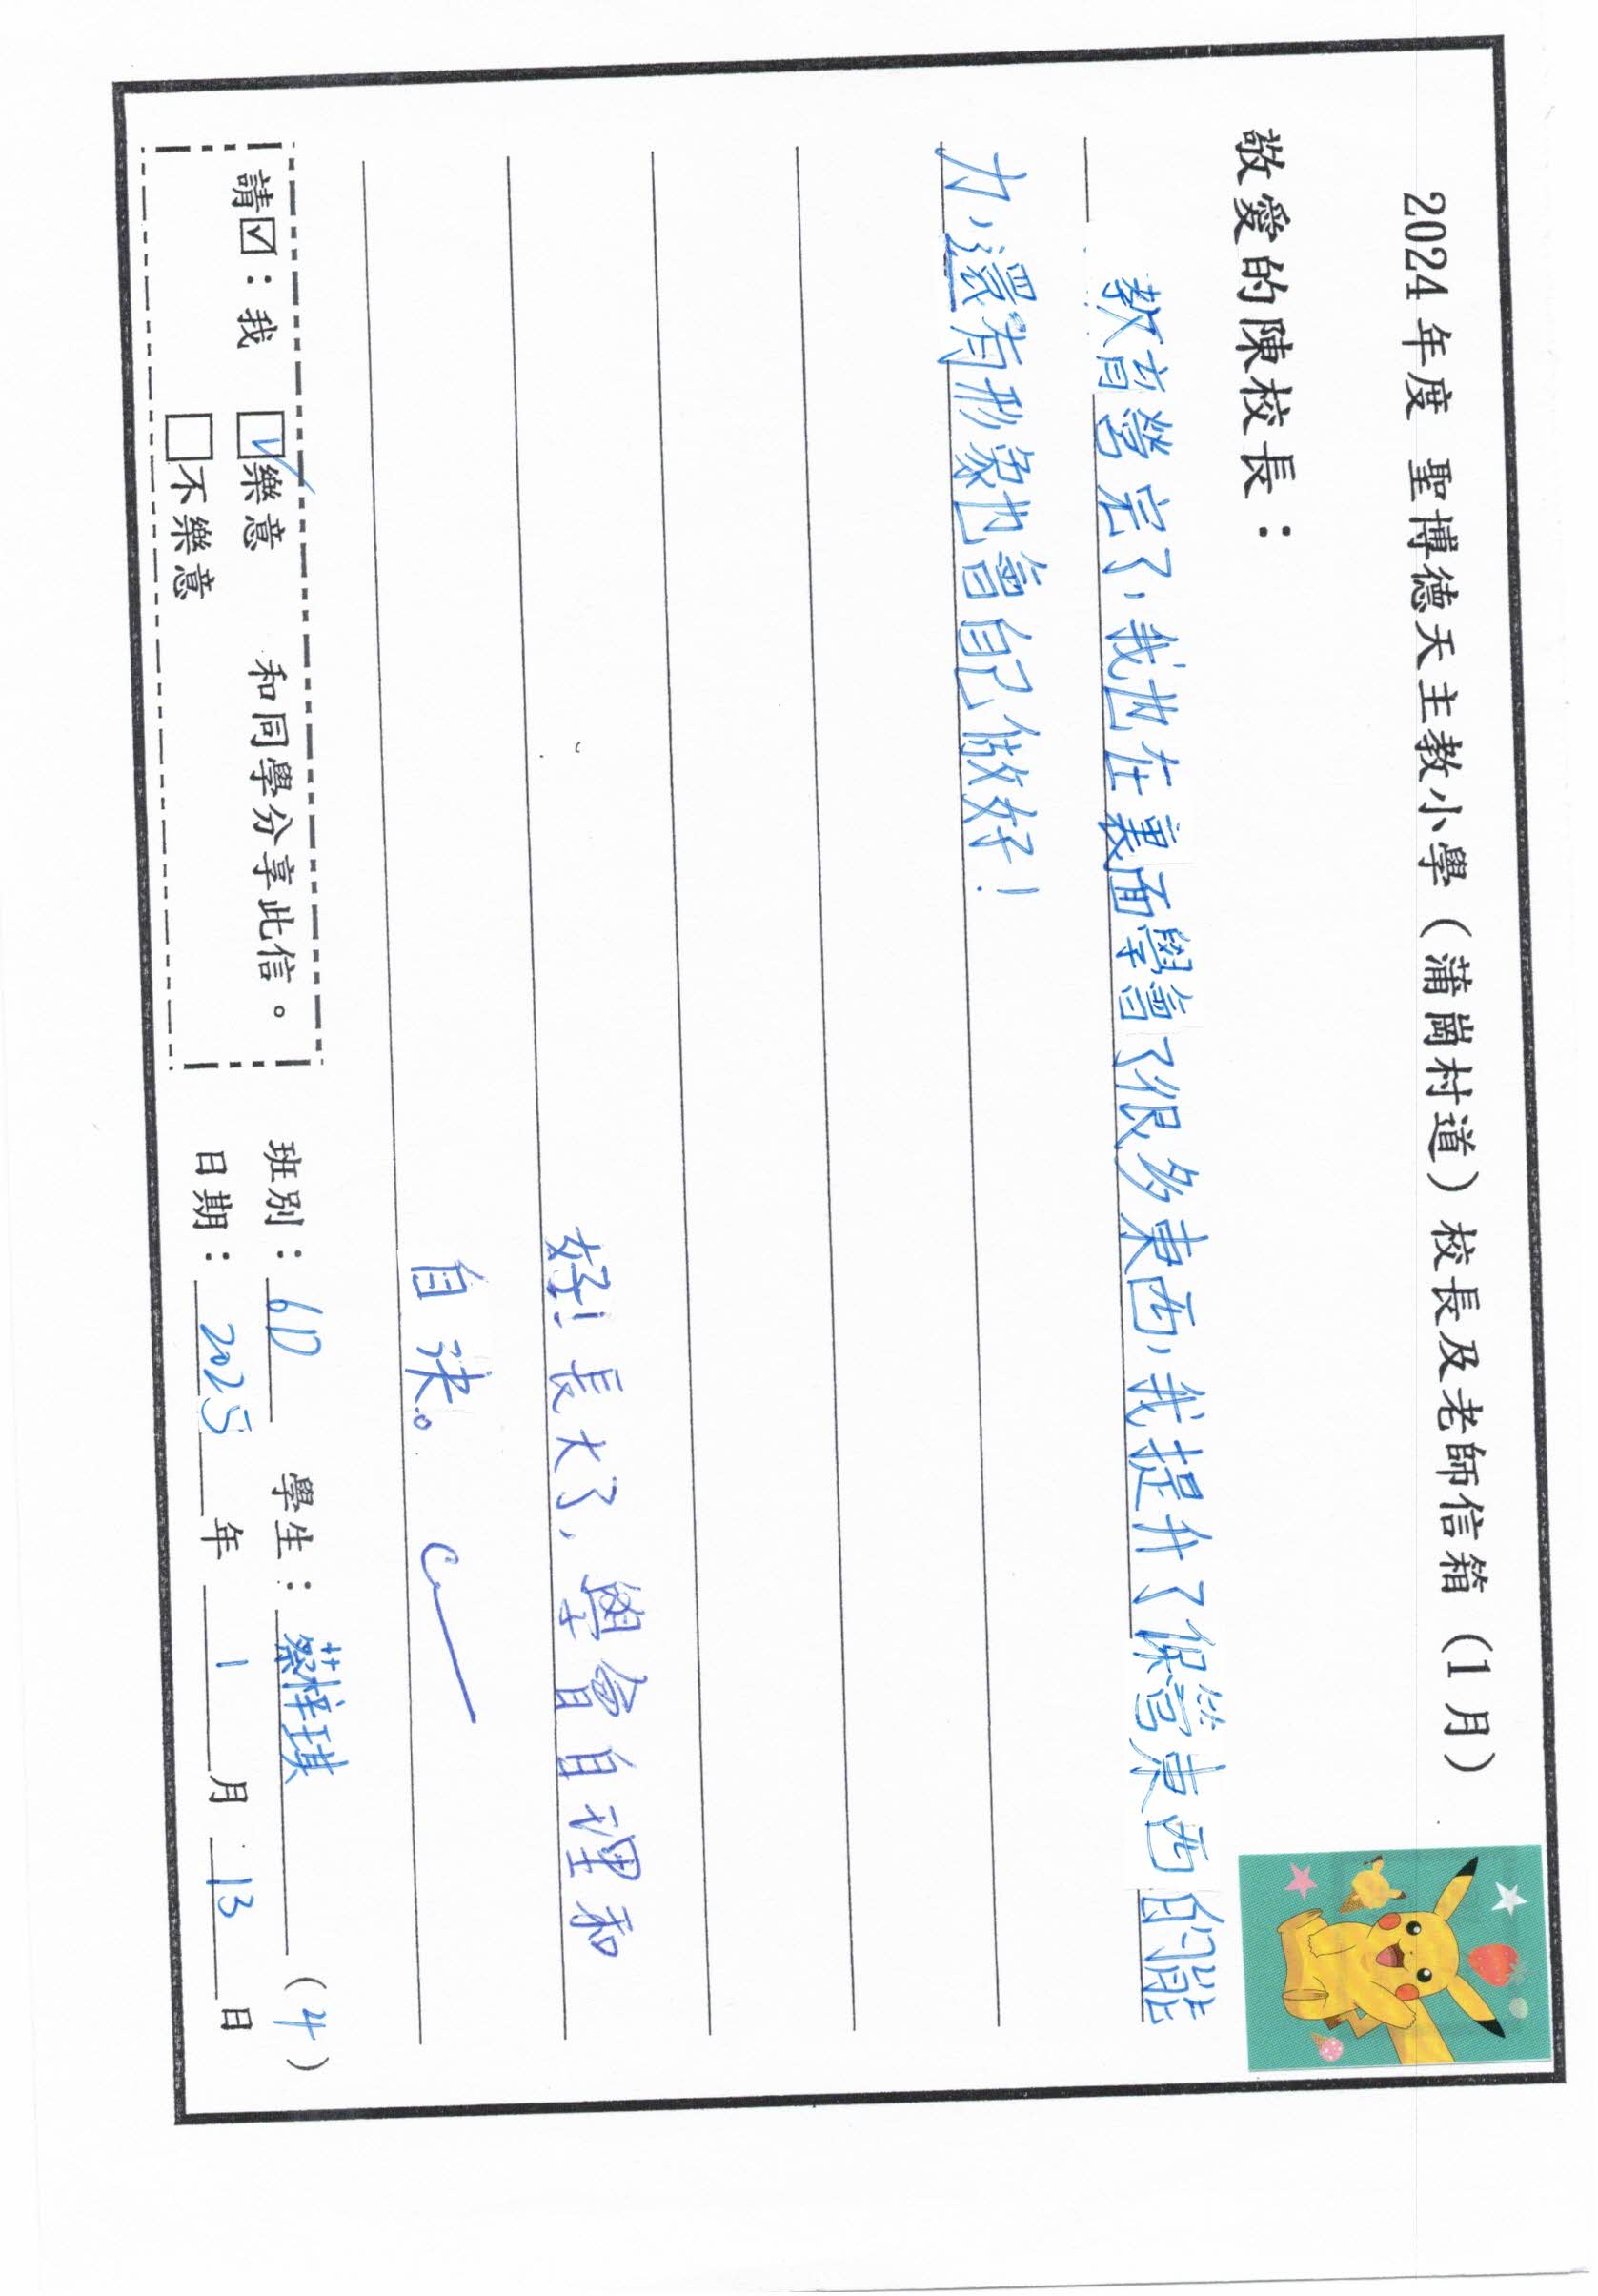 2024年度 聖博德天主教小學（蒲崗村道）校長及老師信箱（1月）
敬愛的陳校長：
教育營完了，我也在裏面學會了很多東西，我提升了保管東西的能
力，還有形象也會自己做好！
好！長大了，學會自理和
自決。
請☑：我 ☑樂意 和同學分享此信。
□不樂意
班別：6D 學生：蔡梓琪（4）
日期：2025年1月13日